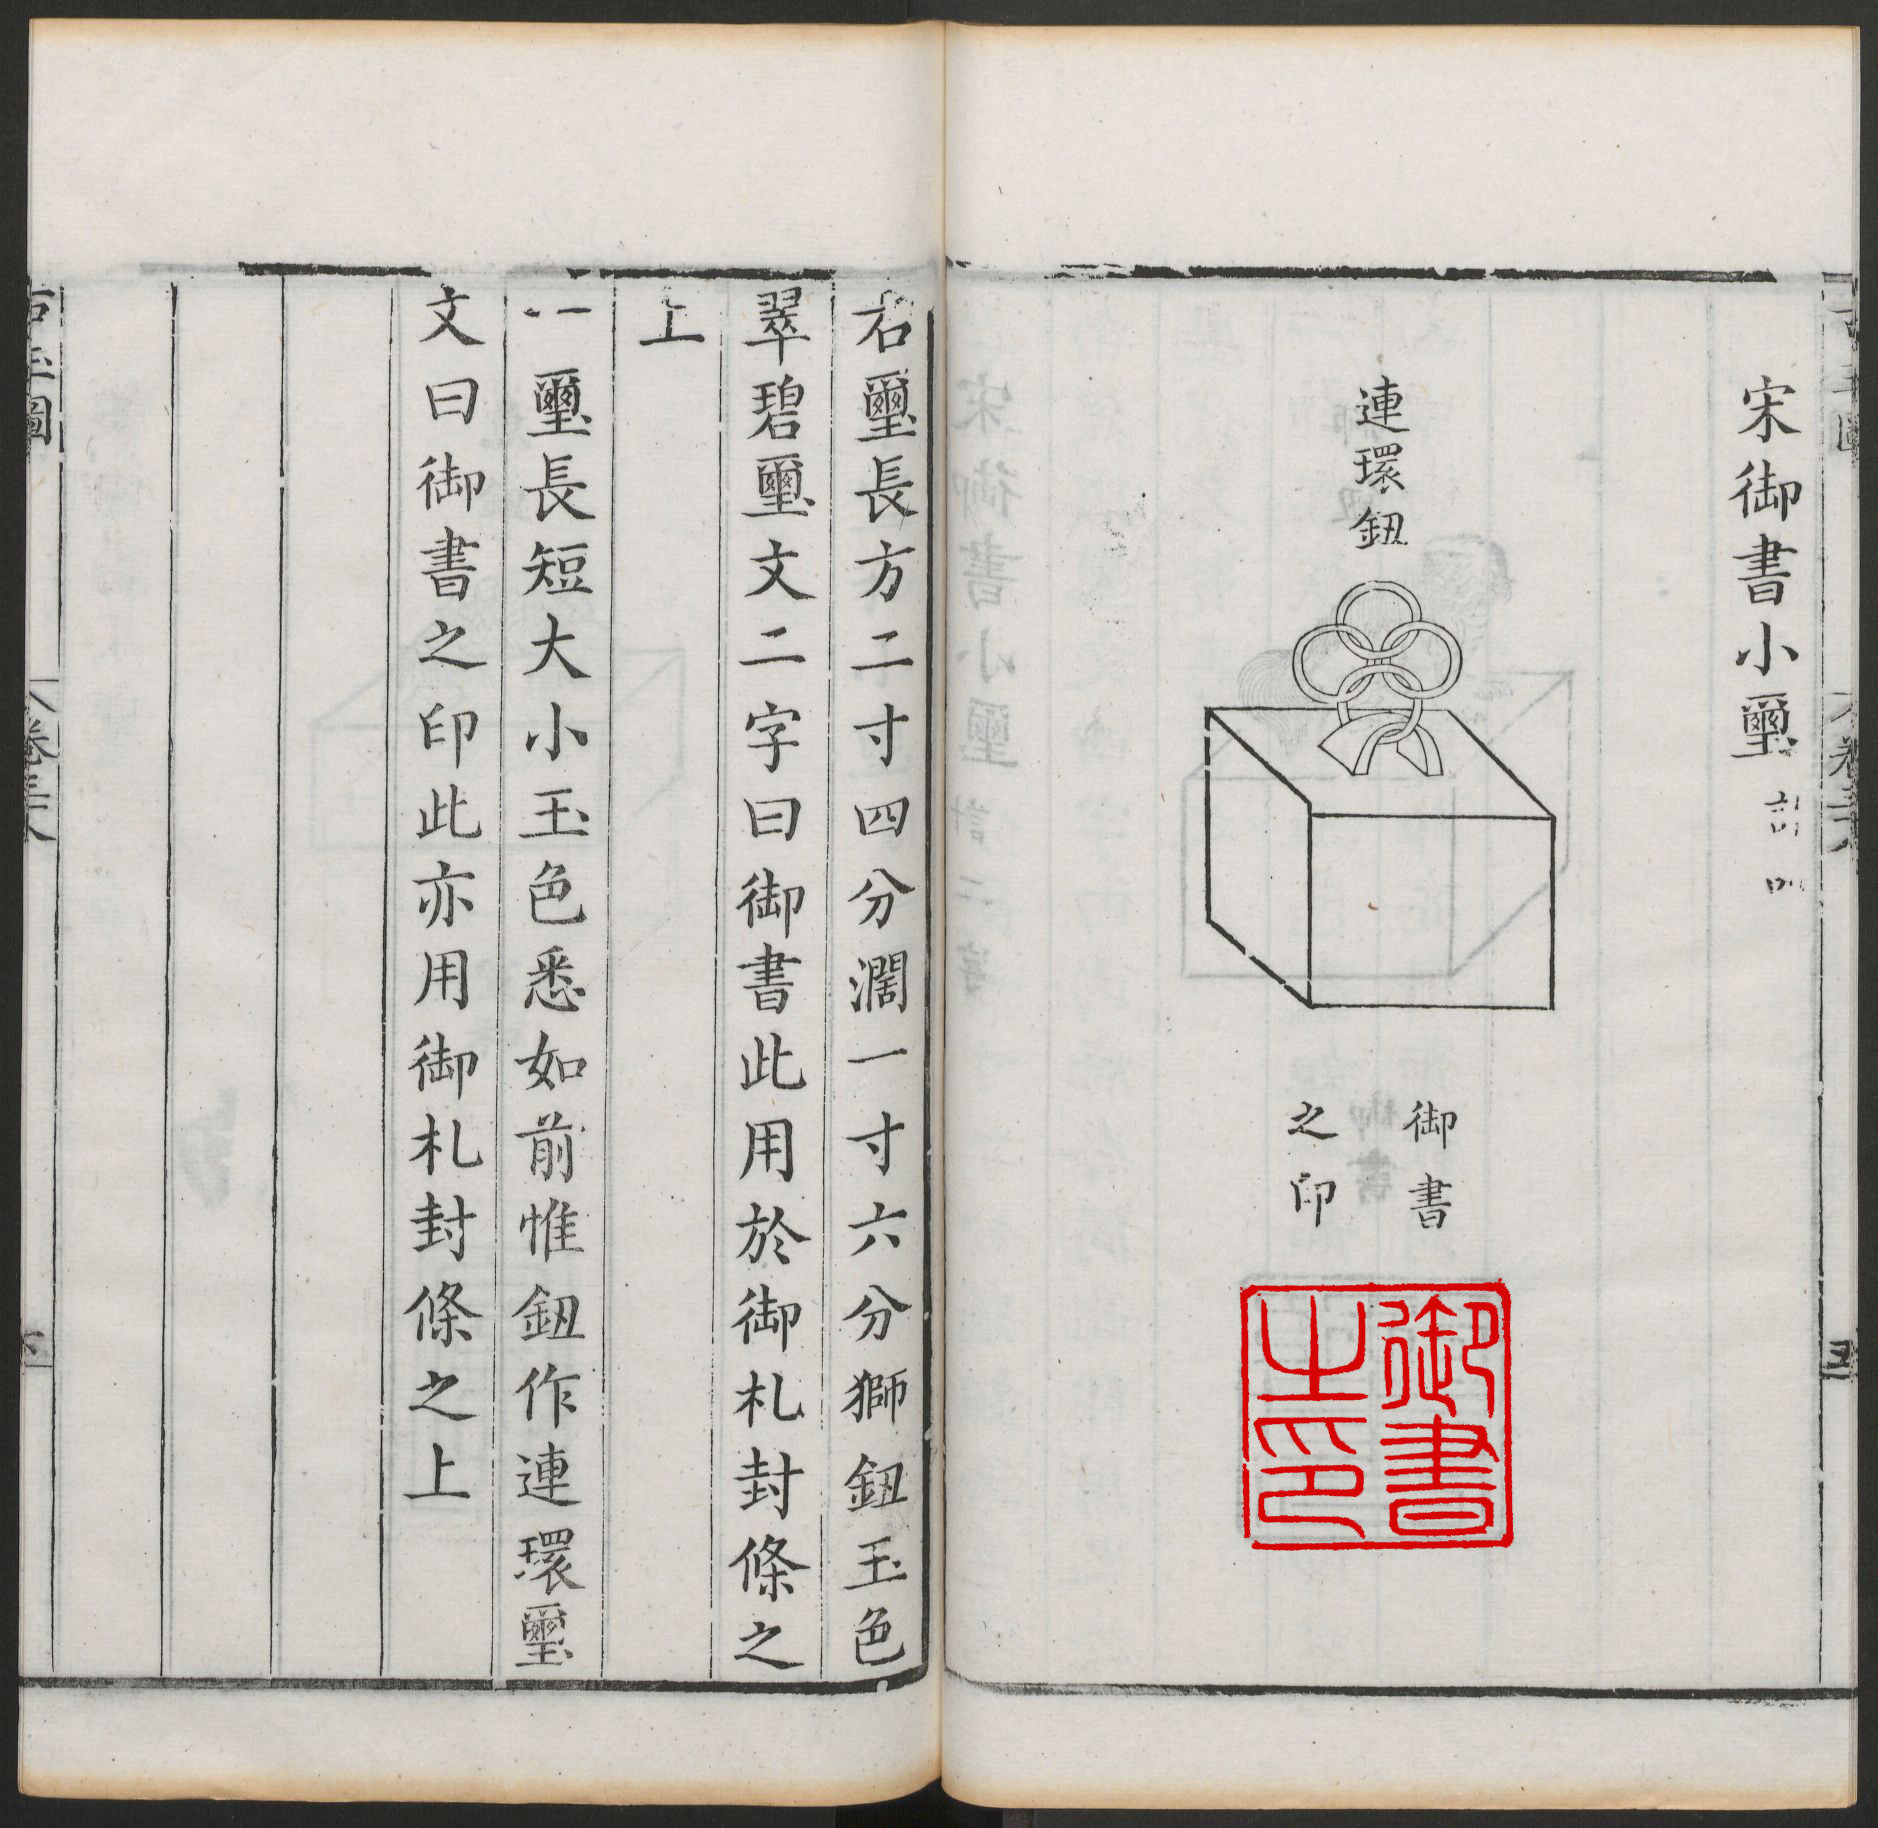 宋御書小璽
連環鈕
御書
之印
御書
之印
右璽長方二寸四分濶一寸六分獅鈕玉色
翠碧璽文二字曰御書此用於御札封條之
上
一璽長短大小玉色悉如前惟鈕作連環璽
文曰御書之印此亦用御札封條之上